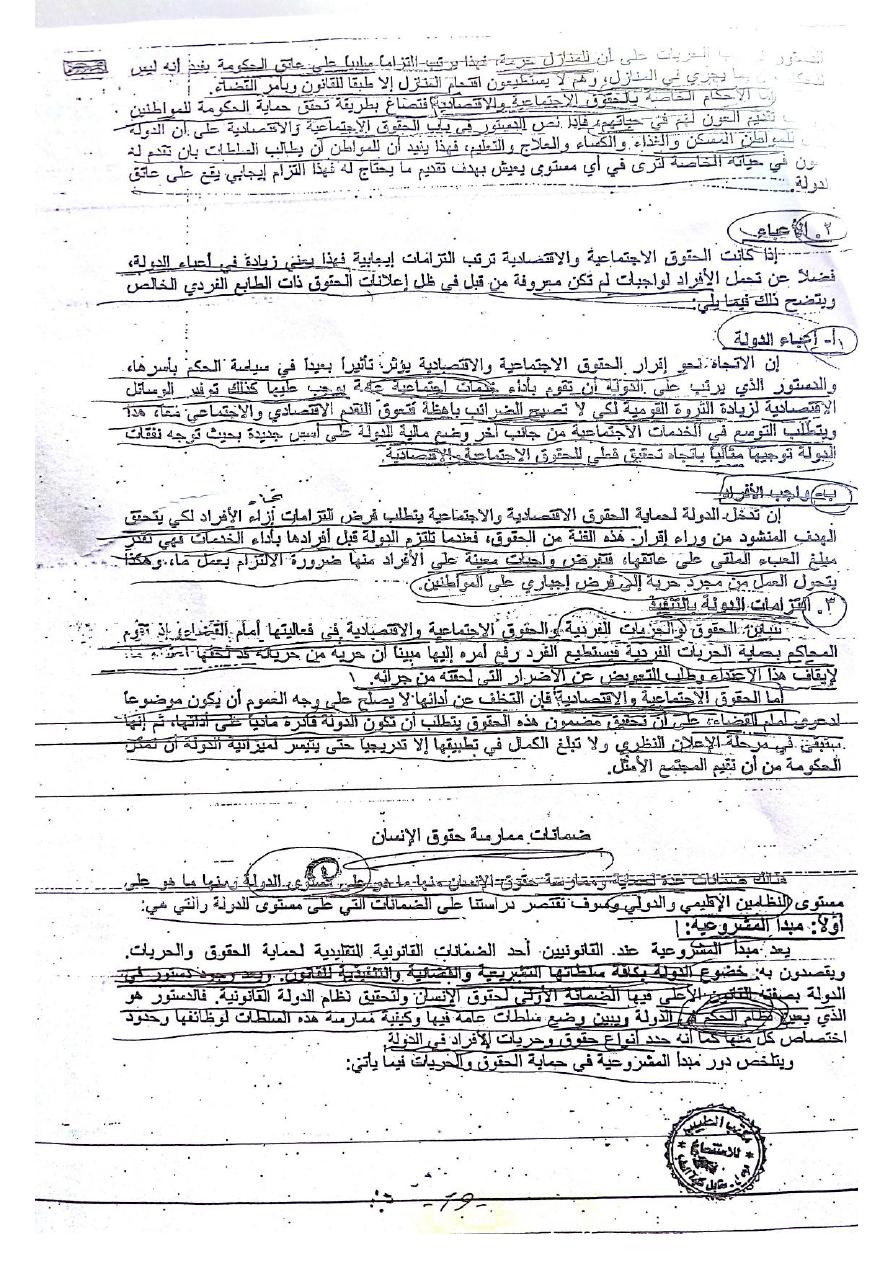 الحريات على أن للمنازل حرمة، فهذا يرتب التزاماً سلبياً على عاتق الحكومة يفيد أنه ليس
بما يجري في المنازل، وهم لا يستطيعون اقتحام المنزل إلا طبقاً للقانون وبأمر القضاء.
أما الأحكام الخاصة بالحقوق الاجتماعية والاقتصادية فتصاغ بطريقة تحقق حماية الحكومة للمواطنين
تقديم العون لهم في حياتهم، فإذا نص الدستور في باب الحقوق الاجتماعية والاقتصادية على أن الدولة
للمواطن المسكن والغذاء والكساء والعلاج والتعليم، فهذا يفيد أن للمواطن أن يطالب السلطات بان تقدم له
في حياته الخاصة لترى في أي مستوى يعيش بهدف تقديم ما يحتاج له فهذا التزام إيجابي يقع على عاتق
الدولة.
٢. الأعباء
إذا كانت الحقوق الاجتماعية والاقتصادية ترتب التزامات إيجابية فهذا يعني زيادة في أعباء الدولة،
فضلاً عن تحمل الأفراد لواجبات لم تكن معروفة من قبل في ظل إعلانات الحقوق ذات الطابع الفردي الخالص
ويتضح ذلك فيما يلي:
أ- أعباء الدولة
إن الاتجاه نحو إقرار الحقوق الاجتماعية والاقتصادية يؤثر تأثيراً بعيداً في سياسة الحكم بأسرها،
والدستور الذي يرتب على الدولة أن تقوم بأداء خدمات اجتماعية عامة يوجب عليها كذلك توفير الوسائل
الاقتصادية لزيادة الثروة القومية لكي لا تصبح الضرائب باهظة فتعوق التقدم الاقتصادي والاجتماعي معاً، هذا
ويتطلب التوسع في الخدمات الاجتماعية من جانب آخر وضع مالية الدولة على أسس جديدة بحيث توجه نفقات
الدولة توجيهاً مثالياً باتجاه تحقيق فعلي للحقوق الاجتماعية والاقتصادية.
ب- واجب الأفراد
إن تدخل الدولة لحماية الحقوق الاقتصادية والاجتماعية يتطلب فرض التزامات إزاء الأفراد لكي يتحقق
الهدف المنشود من وراء إقرار هذه الفئة من الحقوق، فعندما تلتزم الدولة قبل أفرادها بأداء الخدمات فهي تقدر
مبلغ العبء الملقى على عاتقها، فتفرض واجبات معينة على الأفراد منها ضرورة الالتزام بعمل ما، وهكذا
يتحول العمل من مجرد حرية إلى فرض إجباري على المواطنين.
٣. التزامات الدولة بالتنفيذ
تتباين الحقوق والحريات الفردية والحقوق الاجتماعية والاقتصادية في فعاليتها أمام القضاء، إذ تقوم
المحاكم بحماية الحريات الفردية فيستطيع الفرد رفع أمره إليها مبيناً أن حرية من حرياته قد لحقها
لإيقاف هذا الاعتداء وطلب التعويض عن الأضرار التي لحقته من جرائه.
أما الحقوق الاجتماعية والاقتصادية فإن التخلف عن أدائها لا يصلح على وجه العموم أن يكون موضوعاً
لدعوى أمام القضاء، على أن تحقيق مضمون هذه الحقوق يتطلب أن تكون الدولة قادرة مادياً على أدائها، ثم إنها
ستبقى في مرحلة الإعلان النظري ولا تبلغ الكمال في تطبيقها إلا تدريجياً حتى يتيسر لميزانية الدولة أن تمكن
الحكومة من أن تقيم المجتمع الأمثل.
ضمانات ممارسة حقوق الإنسان
هنالك ضمانات عدة لحماية وممارسة حقوق الإنسان منها ما هو على مستوى الدولة ومنها ما هو على
مستوى النظامين الإقليمي والدولي وسوف نقتصر دراستنا على الضمانات التي على مستوى الدولة والتي هي:
أولاً: مبدأ المشروعية:
يعد مبدأ المشروعية عند القانونيين أحد الضمانات القانونية التقليدية لحماية الحقوق والحريات.
ويقصدون به: خضوع الدولة بكافة سلطاتها التشريعية والقضائية والتنفيذية للقانون. ويعد وجود دستور في
الدولة بصفته القانون الأعلى فيها الضمانة الأولى لحقوق الإنسان ولتحقيق نظام الدولة القانونية. فالدستور هو
الذي يعين نظام الحكم في الدولة ويبين وضع سلطات عامة فيها وكيفية ممارسة هذه السلطات لوظائفها وحدود
اختصاص كل منها كما أنه حدد أنواع حقوق وحريات للأفراد في الدولة.
ويتلخص دور مبدأ المشروعية في حماية الحقوق والحريات فيما يأتي:
مكتب الطيب
للاستنساخ